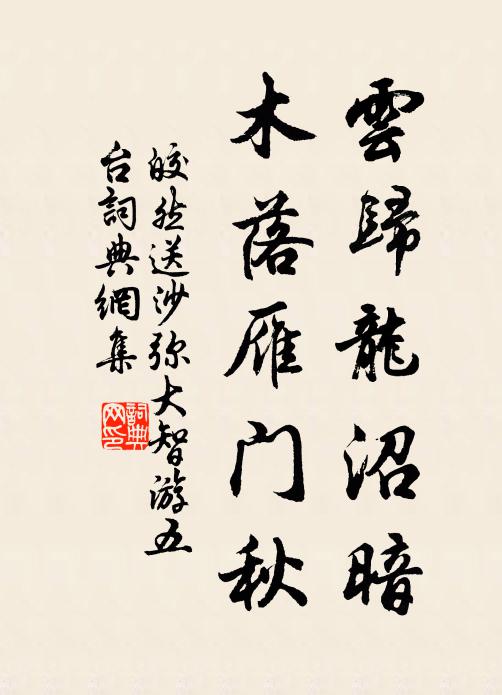 雲歸龍沼暗
木落雁门秋
皎然送沙弥大智游五
台詞典網集
詞典网印